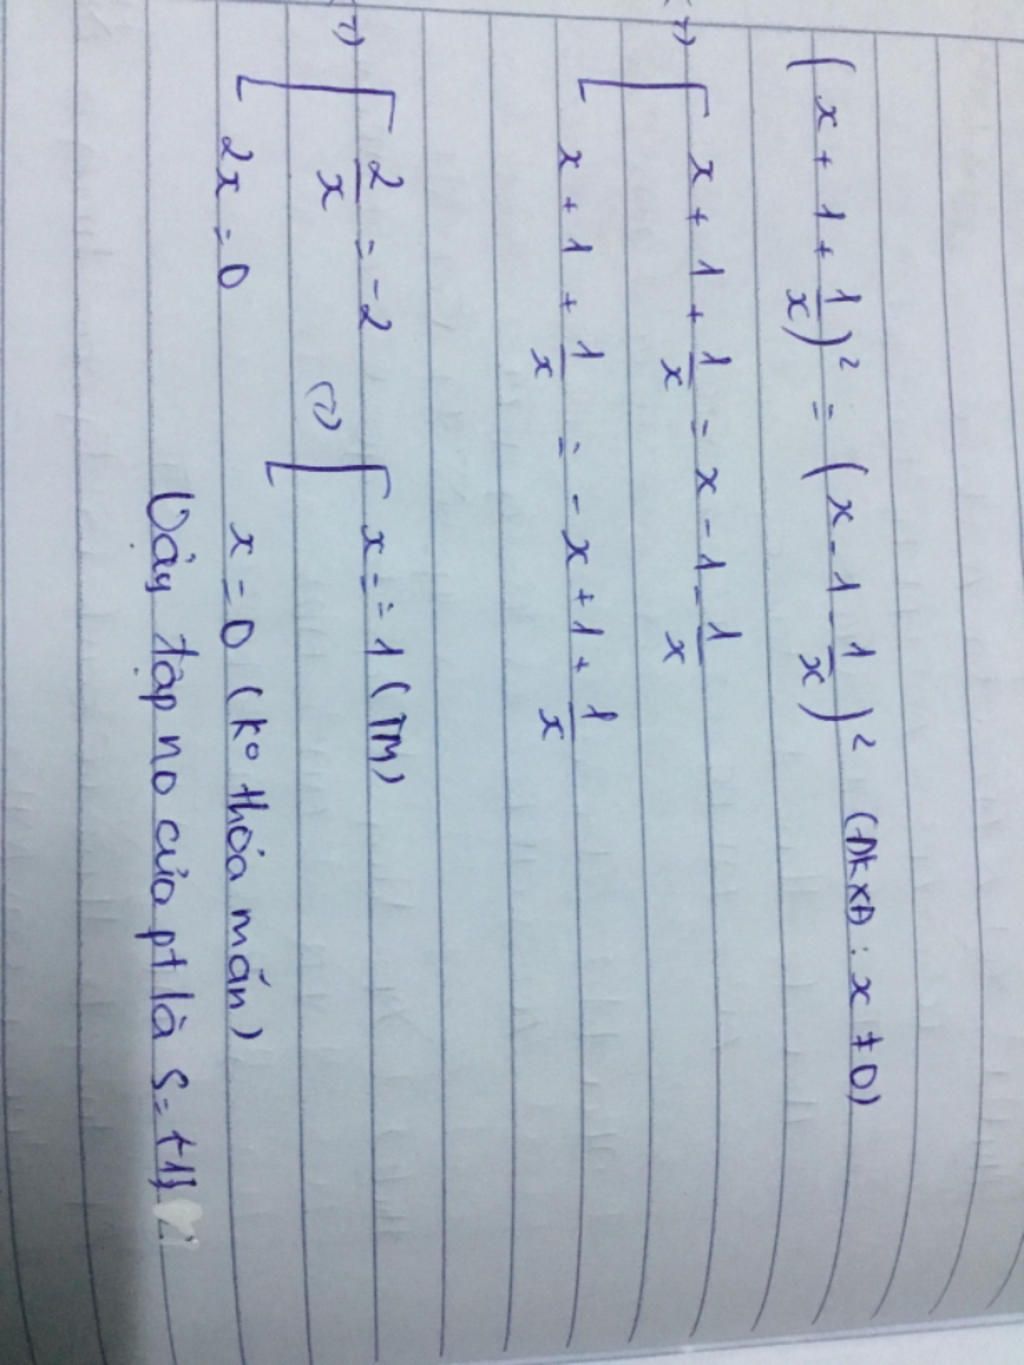 (x + 1 + 1/x)² = (x - 1 - 1/x)² (ĐKXĐ: x ≠ 0)
(=) [ x + 1 + 1/x = x - 1 - 1/x
[ x + 1 + 1/x = - x + 1 + 1/x
(=) [ 2/x = -2 (=) [ x = -1 (TM)
[ 2x = 0 x = 0 (ko thỏa mãn)
Vậy tập no của pt là S = {-1}